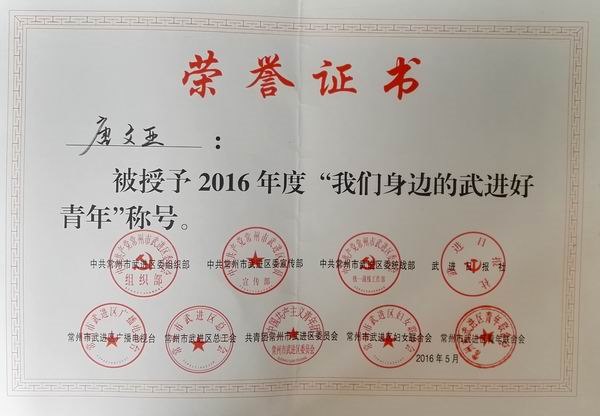 荣誉证书
唐文亚：
被授予2016年度“我们身边的武进好
青年”称号。
中共常州市武进区委组织部 中共常州市武进区委宣传部 中共常州市武进区委统战部 武进日报社
常州市武进区广播电视台 常州市武进区总工会 共青团常州市武进区委员会 常州市武进区妇女联合会 常州市武进区青年联合会
2016年5月